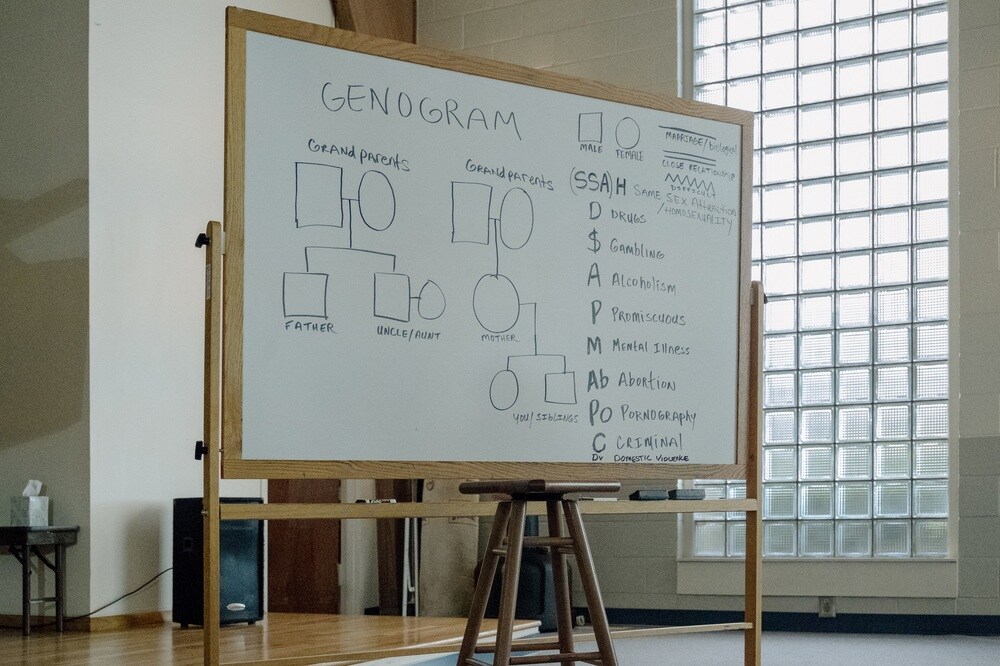 GENOGRAM
Grandparents
Grandparents
FATHER
UNCLE/AUNT
MOTHER
YOU/SIBLINGS
MALE
FEMALE
MARRIAGE/biological
CLOSE RELATIONSHIP
DIFFICULT
(SSA) H SAME SEX Attraction
/HOMOSEXUALITY
D DRUGS
$ Gambling
A Alcoholism
P Promiscuous
M Mental Illness
Ab Abortion
Po Pornography
C CRIMINAL
Dv DOMESTIC VIOLENCE